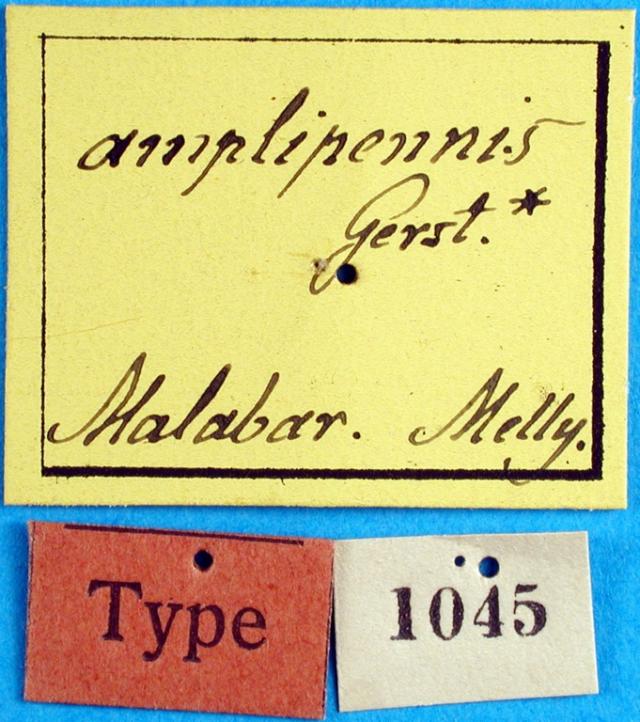 amplipennis
Gerst.*
Malabar. Melly.
Type
1045